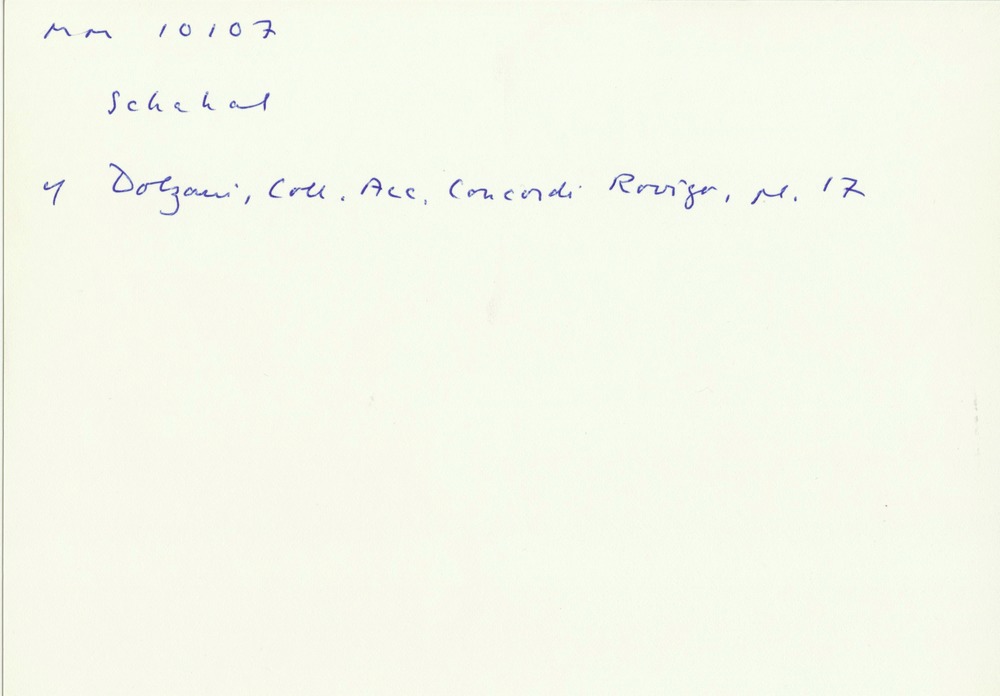 MM 10107
Schakal
Dolzani, Coll. Acc. Concordi Rovigo, pl. 17